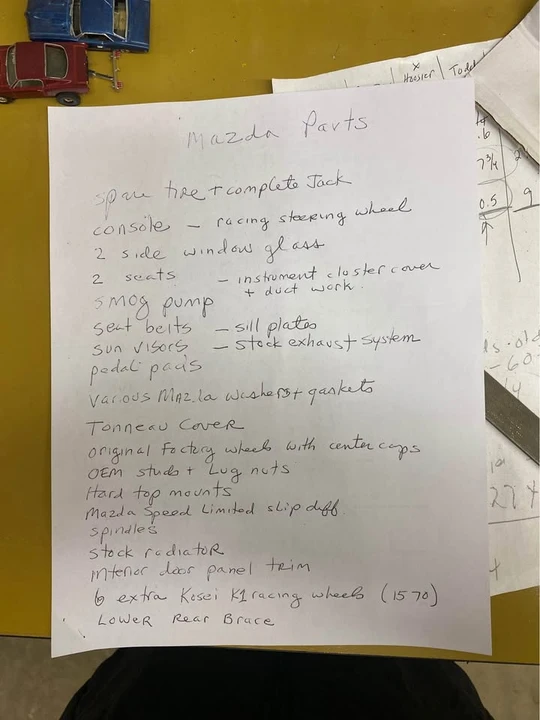 Mazda Parts
spare tire + complete Jack
console - racing steering wheel
2 side window glass
2 seats - instrument cluster cover
+ duct work.
smog pump
seat belts - sill plates
sun visors - stock exhaust system
pedal pads
various Mazda washers + gaskets
Tonneau Cover
original Factory wheels with center caps
OEM studs + Lug nuts
Hard top mounts
Mazda Speed Limited slip diff
spindles
stock radiator
interior door panel trim
6 extra Kosei K1 racing wheels (15 70)
Lower Rear Brace
x
Hoosier
.6
7 3/4
0.5
9
old
-60
274